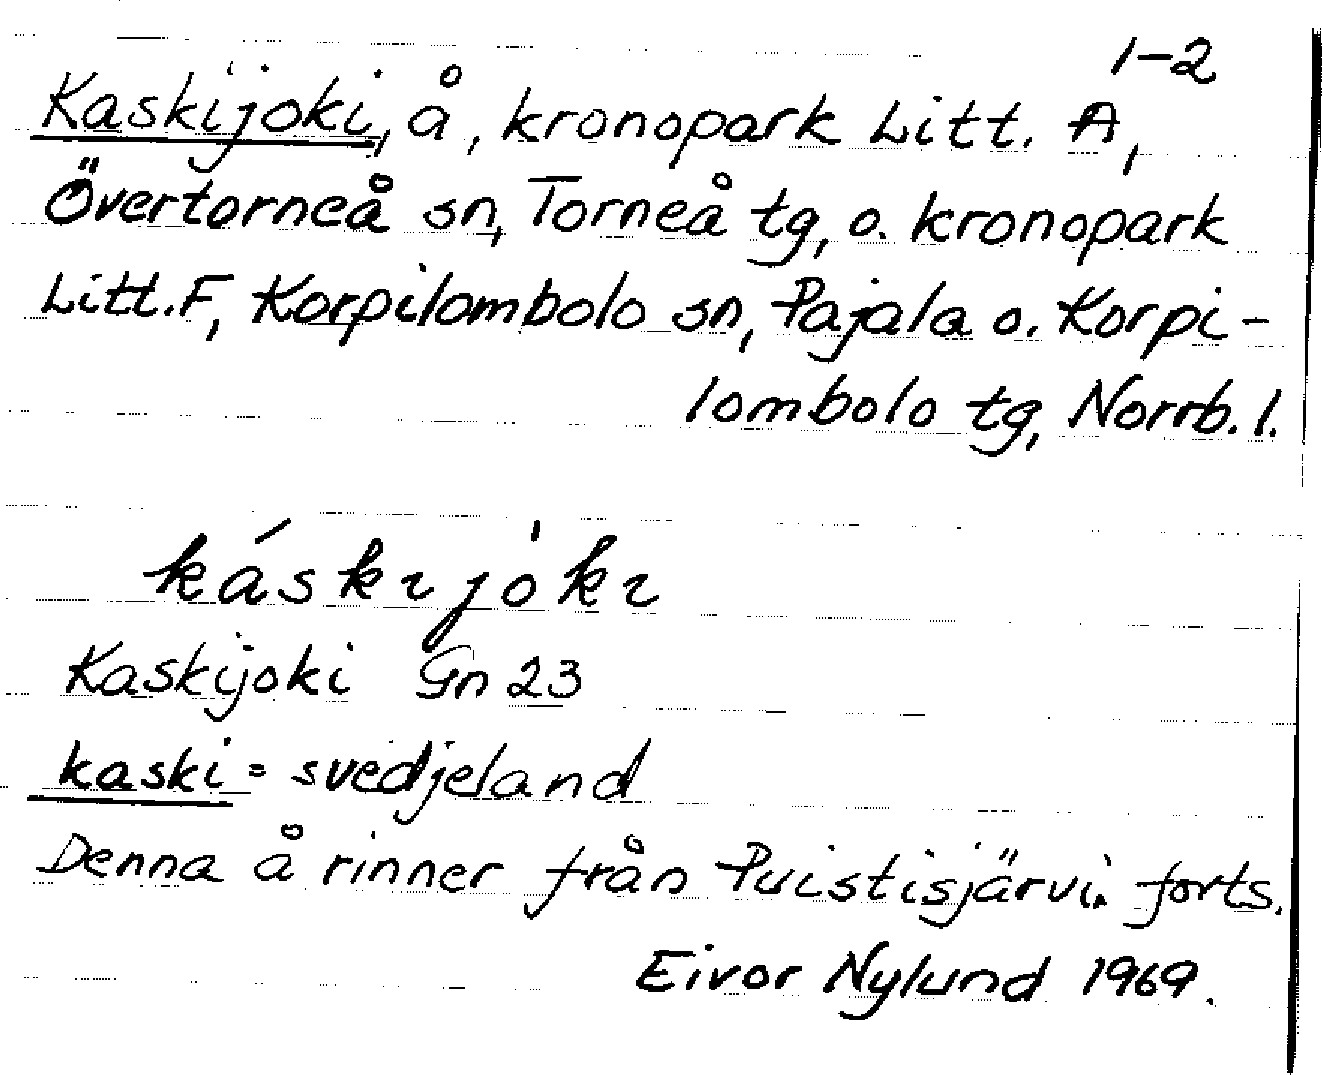 1-2
Kaskijoki, å, kronopark Litt. A,
Övertorneå sn, Torneå tg, o. kronopark
Litt. F, Korpilombolo sn, Pajala o. Korpi-
lombolo tg, Norrb. l.
káskɩjòkɩ
Kaskijoki Gn 23
kaski = svedjeland
Denna å rinner från Puistisjärvi. forts.
Eivor Nylund 1969.